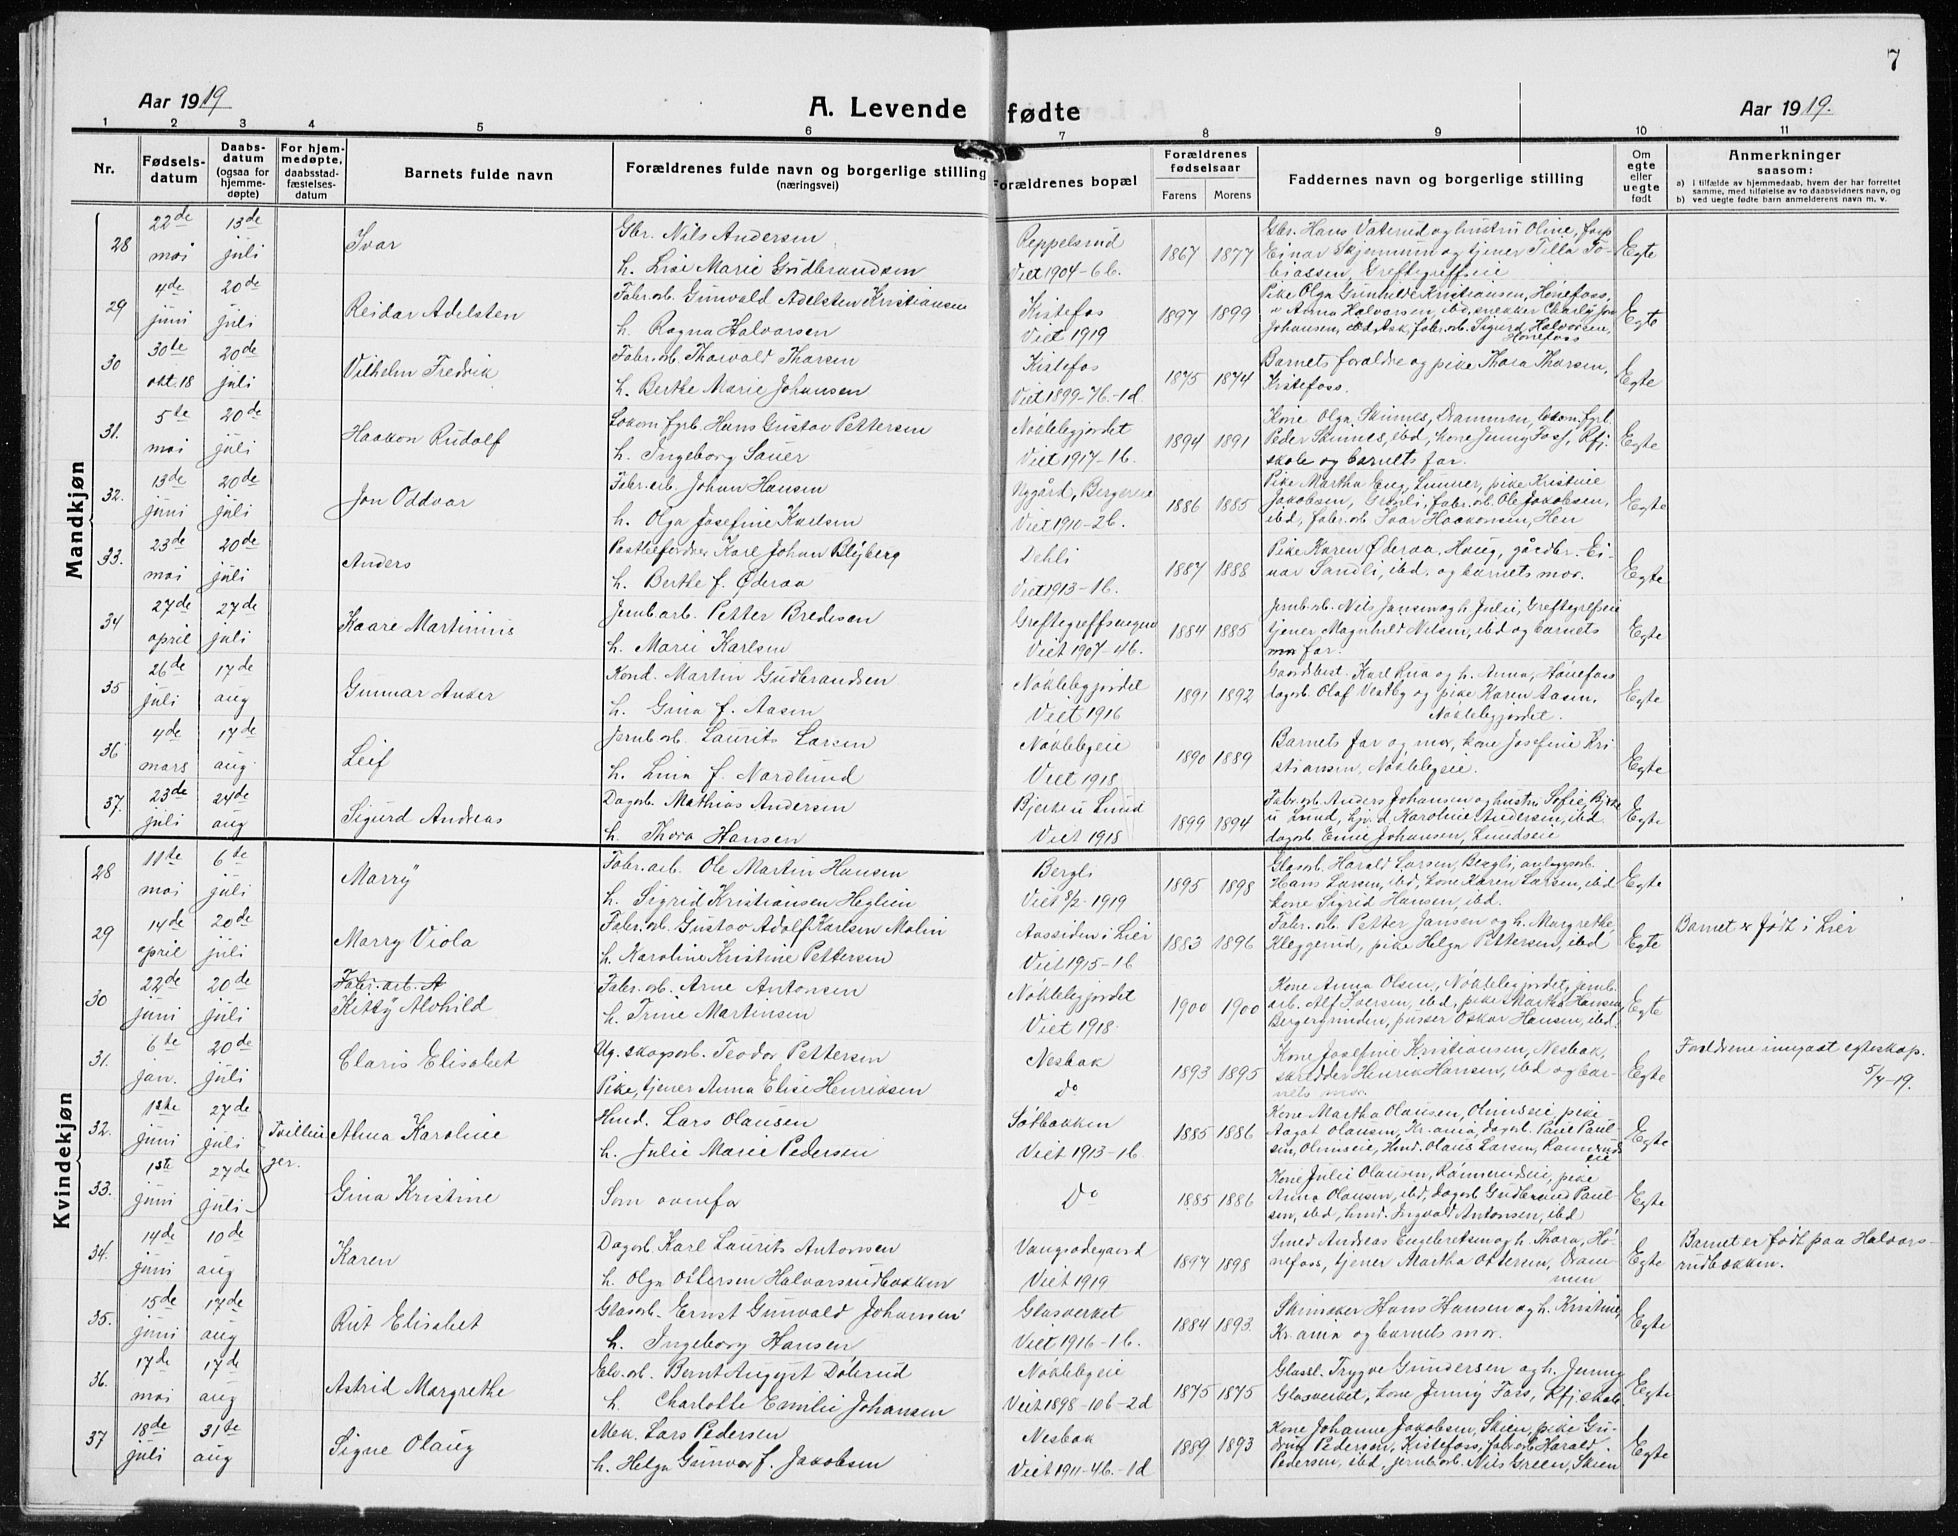 7
Aar 1919
A. Levende fødte
Aar 1919.
1 2 3 4 5 6 7 8 9 10 11
Nr.
Fødsels-
datum
Daabs-
datum
(ogsaa for
hjemme-
døpte)
For hjem-
medøpte,
daabsstad-
fæstelses-
datum
Barnets fulde navn
Forældrenes fulde navn og borgerlige stilling
(næringsvei)
Forældrenes bopæl
Forældrenes
fødselsaar
Farens Morens
Faddernes navn og borgerlige stilling
Om
egte
eller
uegte
født
Anmerkninger
saasom:
a) i tilfælde av hjemmedaab, hvem der har forrettet
samme, med tilføielse av to daabsvidners navn, og
b) ved uegte fødte barn anmelderens navn m. v.
Mandkjøn
28 22de mai 13de juli Ivar
Gbr. Nils Andersen
h. Lise Marie Gudbrandsen
Reppelsrud
Viet 1904-6b.
1867 1877
Gbr. Hans Vaterud og hustru Oline, forp
Einar Skjennum og tjener Tilla To-
biassen, Greftegreffseie
Egte
29 4de juni 20de juli Reidar Adelsten
Fabr.arb. Gunvald Adelsten Kristiansen
h. Ragna Halvorsen
Kistefos
Viet 1919
1897 1899
Pike Olga Gunhilde Kristiansen, Hønefoss,
Anna Halvorsen, ibd, snekker Charly Jon
Johansen, Ask, fabr.arb. Sigurd Halvorsen,
Hønefoss
Egte
30 30te okt. 18 20de juli Vilhelm Fredrik
Fabr.arb. Thorvald Thorsen
h. Berthe Marie Johansen
Kistefos
Viet 1899-7b.-1d
1875 1874
Barnets foreldre og pike Thora Thorsen,
Kistefoss.
Egte
31. 5te mai 20de juli Haakon Rudolf
Lokom.fyrb. Hans Gustav Pettersen
h. Ingeborg Sauer
Nøklebygjordet
Viet 1917-1b.
1894 1891
Kone Olga Skinnes, Drammen, lokom.fyrb.
Peder Skinnes, ibd, kone Jenny Foss, Kfj.
skole og barnets far.
Egte
32. 13de juni 20de juli Jon Oddvar
Fabr.arb. Johan Hansen
h. Olga Josefine Karlsen
Nygård, Bergereie
Viet 1910-2b.
1886 1885
Pike Martha Eng, Lunner, pike Kristine
Jakobsen, fabr.arb. Ole Jakobsen,
ibd, fabr.arb Ivar Haakonsen, Hen
Egte
33. 23de mai 20de juli Anders
Karl Johan Blyberg
h. Berthe f. Øderaa
Dehli
Viet 1913-1b.
1887 1888
Pike Karen Øderaa, Haug, gårdbr. Ei-
nar Sandli, ibd. og barnets mor.
Egte
34 27de april 27de juli Kaare Martinius
Jernb.arb. Petter Bredesen
h. Marie Karlsen
Greftegreffsvegen
Viet 1907-4b.
1884 1885
Jernb.arb. Nils Jansen og h. Julie, Greftegreffseie
tjener Magnhild Nilsen, ibd og barnets
far.
Egte
35 26de juli 17de aug Gunnar Anker
Kond. Martin Gudbrandsen
h. Gina f. Aasen
Nøklebygjordet
Viet 1916
1891 1892
Gaardbest. Karl Rua og h. Anna, Hønefoss
dagarb. Olaf Vestby og pike Karen Aasen,
Nøklebygjordet.
Egte
36 4de mars 17de aug. Leif
Jernb.arb. Laurits Larsen
h. Lina f. Nordlund
Nøklebyeie
Viet 1918
1890 1889
Barnets far og mor, kone Josefine Kri
stiansen, Nøklebyeie.
Egte
37. 23de juli 24de aug Sigurd Andreas
Dagarb. Mathias Andersen
h. Thora Hansen
Bjerke u Lund
Viet 1918
1899 1894
Fabr.arb Anders Johansen og hustru Sofie, Bjerke
u Lund, hjv. d. Karoline Andersen, ibd.
dagarb Johansen, Lundseie
Egte
Kvindekjøn
28 11te mai 6te juli Marry
Fabr.arb. Ole Martin Hansen
h. Sigrid Kristiansen Heglien
Bergli
Viet 8/2-1919
1895 1898
Glasarb. Harald Larsen, Bergli, anlægsarb.
Hans Larsen, ibd, kone Karen Larsen, ibd
kone Sigrid Hansen, ibd.
Egte
29 14de april 20de juli Marry Viola
Fabr.arb. Gustav Adolf Karlsen Molin
h. Karoline Kristine Pettersen
Aassiden i Lier
Viet 1915-1b
1883 1896
Fabr.arb. Petter Jansen og h. Margrethe,
Kleggerud, pike Helga Pettersen, ibd
Egte
Barnet er født i Lier
30 22de juni 20de juli
Fabr.arb. A
Kitty Alvhild
Fabr.arb. Arne Antonsen
h. Trine Martinsen
Nøklebygjordet
Viet 1918.
1900 1900
Kone Anna Olsen, Nøklebygjordet, jernb.
arb. Alf Iversen, ibd, pike Martha Hansen
Bergergrinden, pusser Oskar Hansen, ibd.
Egte
31. 6te jan. 20de juli Claris Elisabet
Ug. skogsarb. Teodor Pettersen
Pike, tjener Anna Elise Henriksen
Nesbak
Do
1893 1895
Kone Josefine Kristiansen, Nesbak,
skredder Henrik Hansen, ibd og bar-
nets mor.
Egte
Foreldrene inngaat egteskap.
5/7-19.
32. 1ste juni 27de juli Tvillin
ger.
Alma Karoline
Hmd. Lars Olausen
h. Julie Marie Pedersen
Søtbakken
Viet 1913-1b
1885 1886
Kone Martha Olausen, Olimseie, pike
Aagot Olausen, Kr.ania, dagarb. Paul Paul-
sen, Olimseie, Hmd. Olaus Larsen, Rønneruds
eie
Egte
33. 1ste juni 27de juli Gina Kristine
Som ovenfor
Do
1885 1886
Kone Julie Olausen, Rønnerudseie, pike
Anna Olausen, ibd, dagarb Gudbrand Paul-
sen, ibd, hmd. Ingvald Antonsen, ibd
Egte
34. 14de juni 10de aug Karen
Dagarb Karl Laurits Antonsen
h. Olga Ottersen Halvorsrudbakken
Vangsødegaard
Viet 1919
1897 1898
Smed Andreas Engebretsen og h. Thora, Hø-
nefoss, tjener Martha Ottersen, Dram-
men
Egte
Barnet er født paa Halvors-
rudbakken.
35. 15de juni 17de aug Rut Elisabet
Glasarb. Ernst Gunvald Johansen
h. Ingeborg Hansen
Glasverket
Viet 1916-1b.
1884 1893.
Hans Hansen og h. Kristine,
Kr.ania og barnets mor.
Egte
36. 17de mai 17de aug Astrid Margrethe
Elv.arb. Bernt August Dølerud
h. Charlotte Emilie Johansen
Nøklebyeie
Viet 1898-10b-2d
1875 1875
Glassl. Trygve Gundersen og h. Jenny
Glasverket, kone Jenny Foss, Kfj. skole
Egte
37 18de juli 31te aug Signe Olaug
Mek. Lars Pedersen
h. Helga Gunvor f. Jakobsen
Nesbak
Viet 1911-4b.-1d
1889 1893
Kone Johanne Jakobsen, Skien, pike Gu-
drun Pedersen, Kistefoss, fabr.arb Harald
Pedersen, ibd, jernb.arb. Nils Green, Skien
Egte